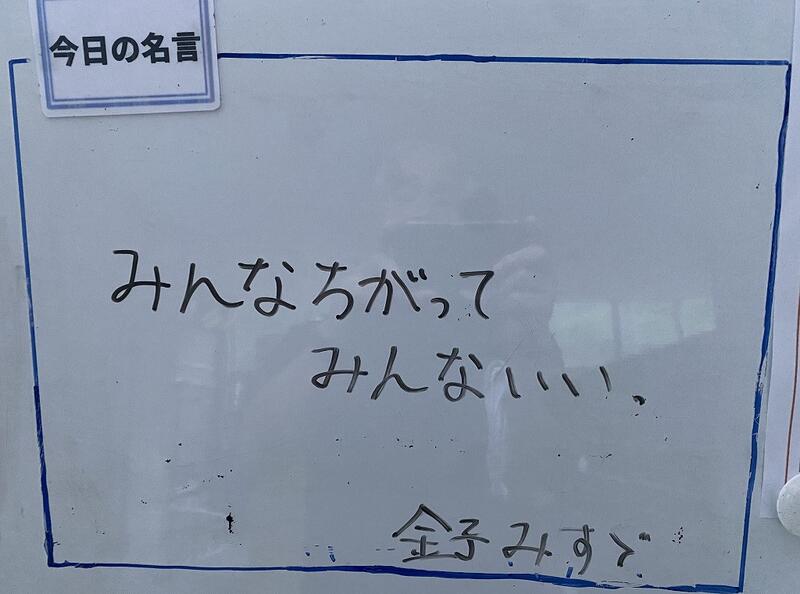 今日の名言
みんなちがって
みんないい、
金子みすゞ